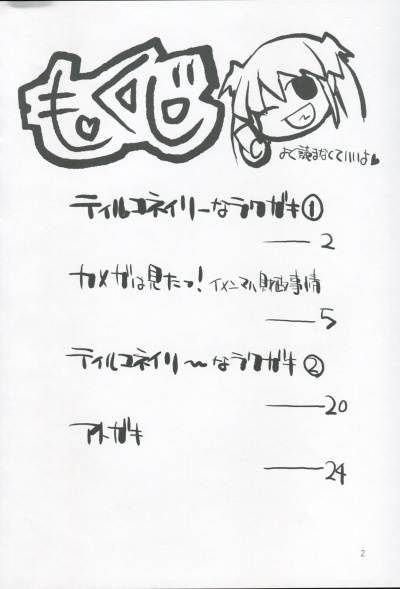 もくじ
よく読まなくていいよ♥
ティルコネイリーなラクガキ①
— 2
カメザは見たっ！イメンマハ財政事情
— 5
ティルコネイリ〜なラクガキ②
— 20
アトガキ
— 24
2